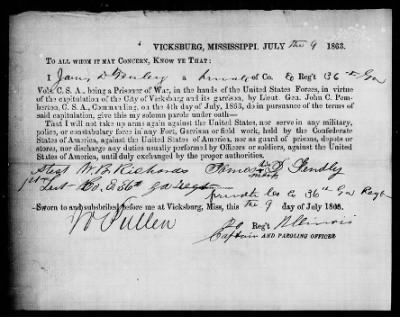 VICKSBURG, MISSISSIPPI. JULY the 9 1863.
TO ALL WHOM IT MAY CONCERN, KNOW YE THAT:
I James D a of Co. E Reg't 36th Ga
Vols. C. S. A., being a Prisoner of War, in the hands of the United States Forces, in virtue
of the capitulation of the City of Vicksburg and its garrison, by Lieut. Gen. John C. Pem-
berton, C. S. A., Commanding, on the 4th day of July, 1863, do in pursuance of the terms of
said capitulation, give this my solemn parole under oath—
That I will not take up arms again against the United States, nor serve in any military,
police, or constabulary force in any Fort, Garrison or field work, held by the Confederate
States of America, against the United States of America, nor as guard of prisons, depots or
stores, nor discharge any duties usually performed by Officers or soldiers, against the United
States of America, until duly exchanged by the proper authorities.
W Richards James his D
mark
1st Lieut Co. E 36 Ga Regt
private Co E 36th Ga Regt
Sworn to and subscribed before me at Vicksburg, Miss., this the 9 day of July 1863.
Reg't Illinois
Captain AND PAROLING OFFICER